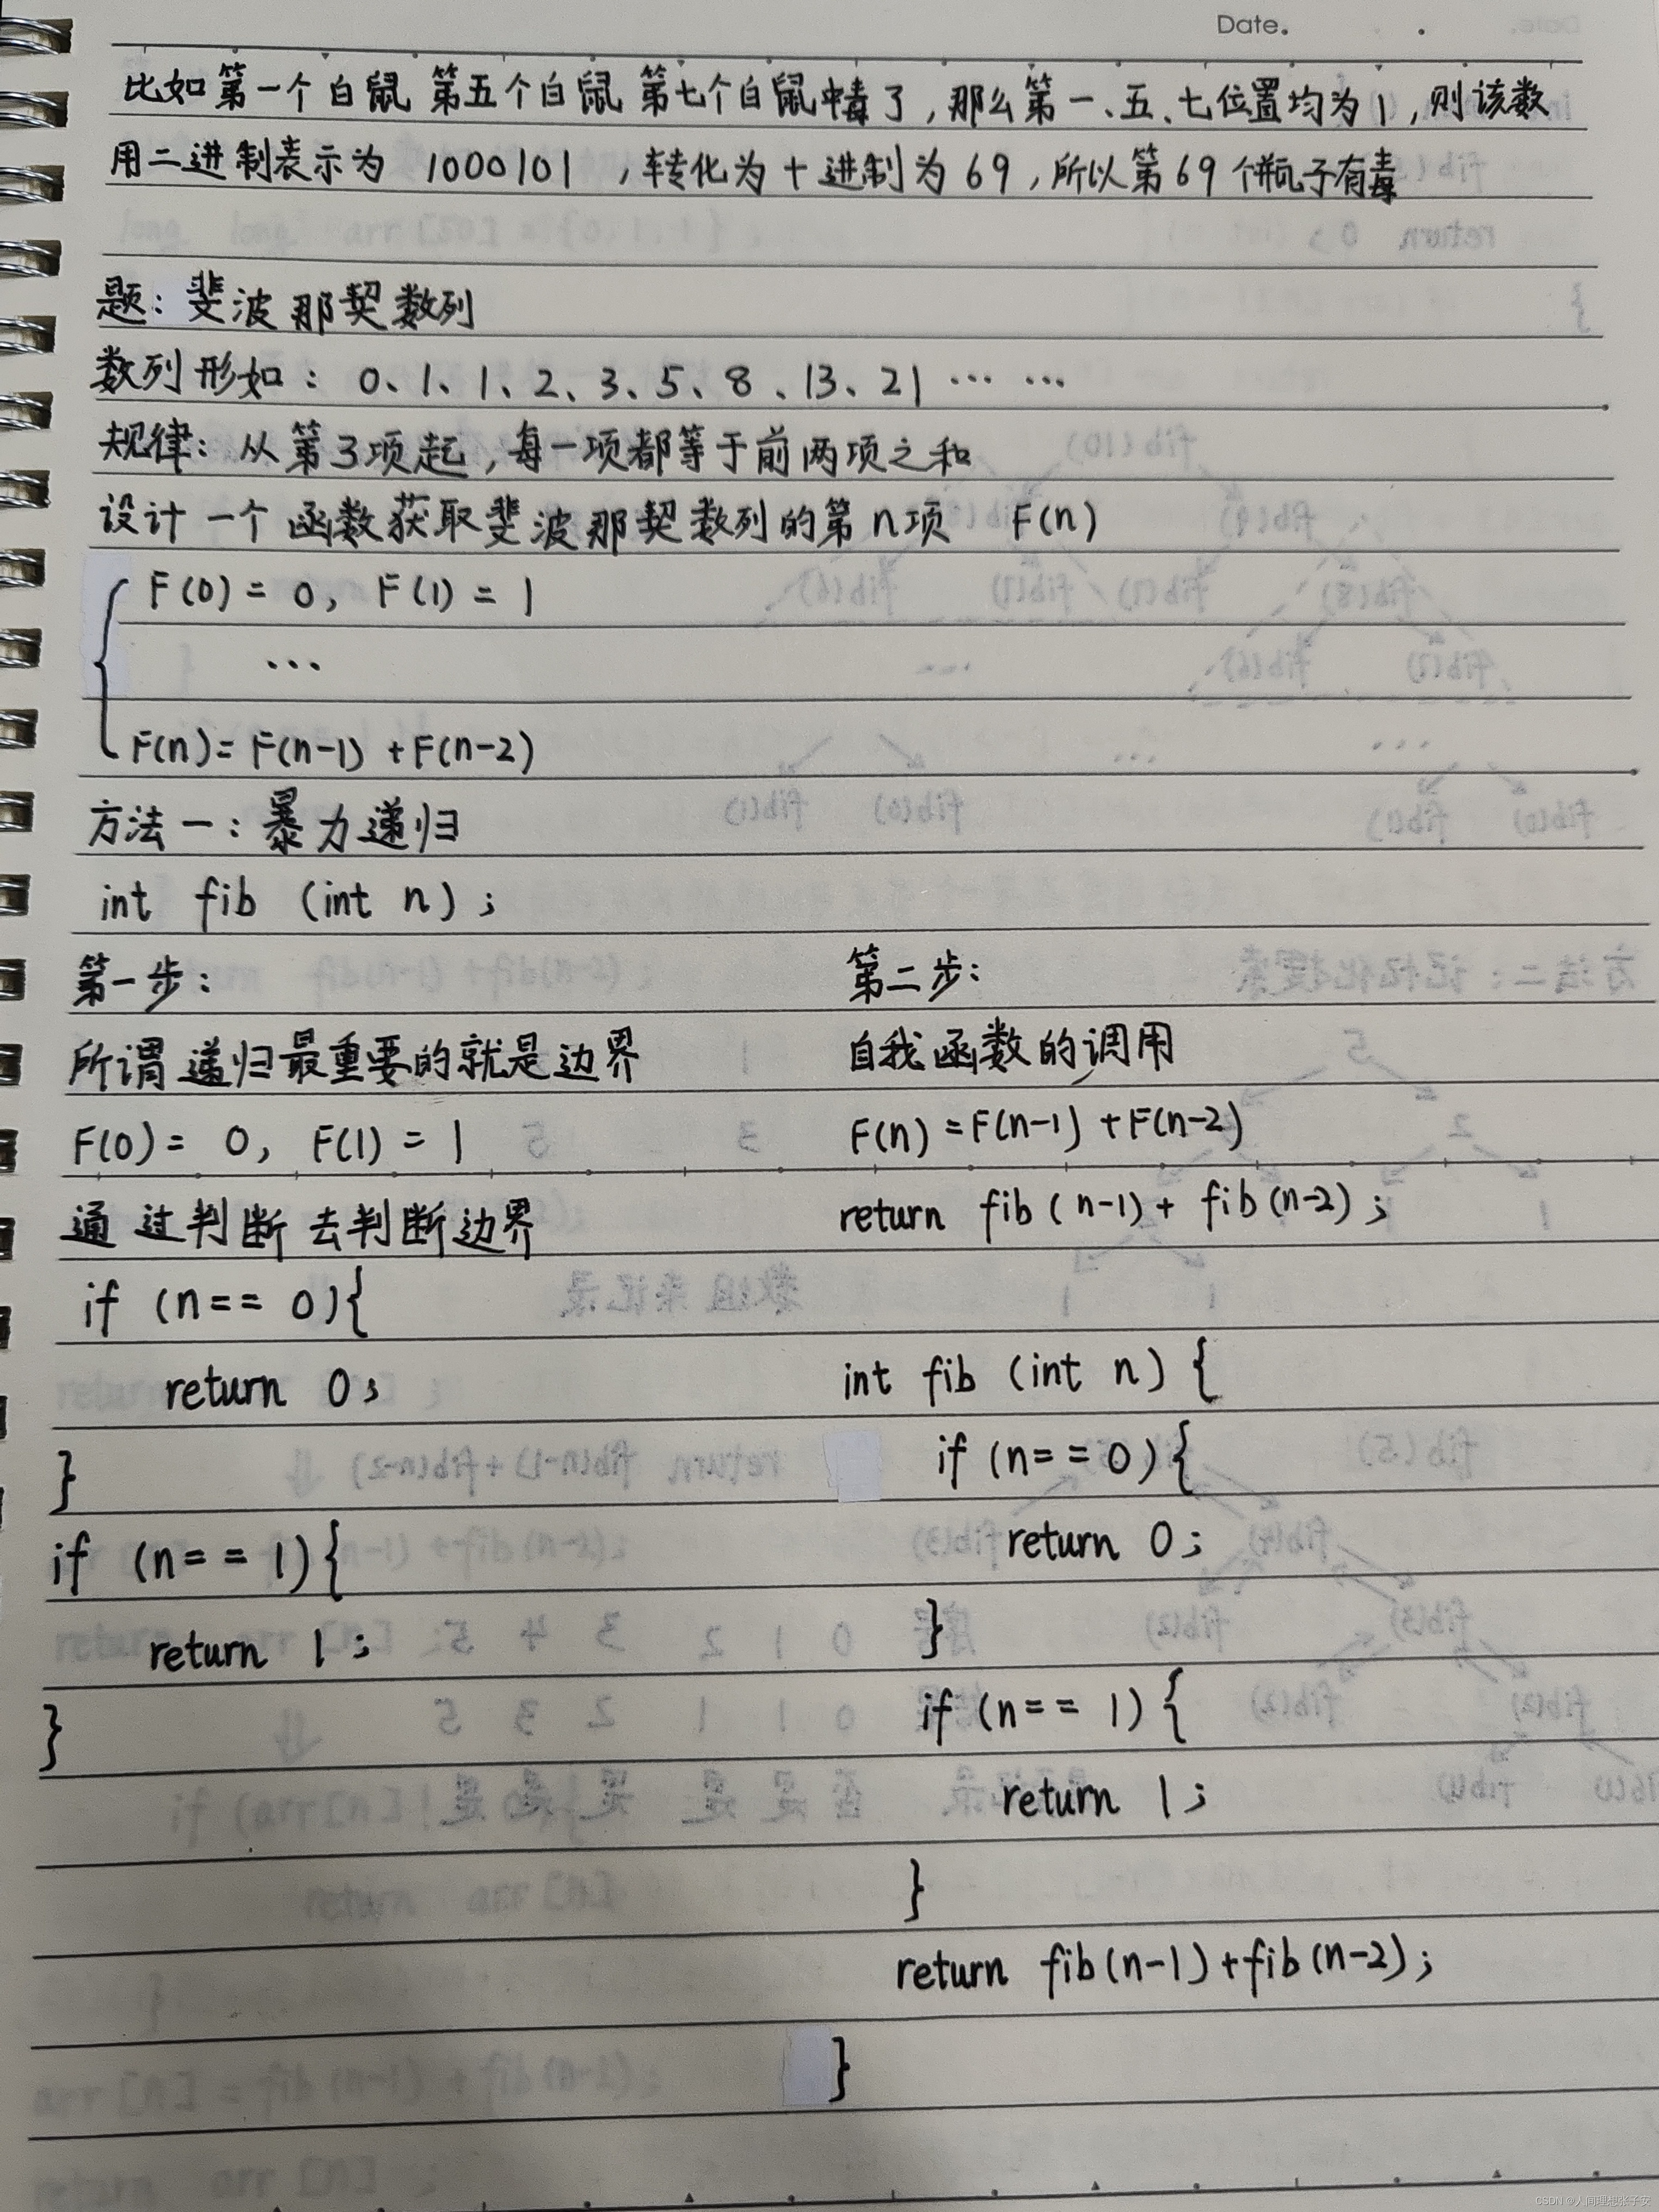 Date.
比如第一个白鼠 第五个白鼠 第七个白鼠中毒了,那么第一、五、七位置均为1,则该数
用二进制表示为 1000101 ,转化为十进制为69,所以第69个瓶子有毒
题:斐波那契数列
数列形如: 0、1、1、2、3、5、8、13、21 ⋯ ⋯
规律:从第3项起,每一项都等于前两项之和
设计一个函数获取斐波那契数列的第n项 F(n)
F(0) = 0, F(1) = 1
...
F(n)= F(n-1) +F(n-2)
方法一:暴力递归
int fib (int n) ;
第一步:
所谓递归最重要的就是边界
F(0)= 0, F(1) = 1
通过判断去判断边界
if (n== 0){
return 0;
}
if (n== 1){
return 1;
}
第二步:
自我函数的调用
F(n) =F(n-1) +F(n-2)
return fib (n-1) + fib (n-2) ;
int fib (int n) {
if (n== 0) {
return 0;
}
if (n== 1) {
return 1;
}
return fib(n-1)+fib(n-2);
}
CSDN @人间理想张子安